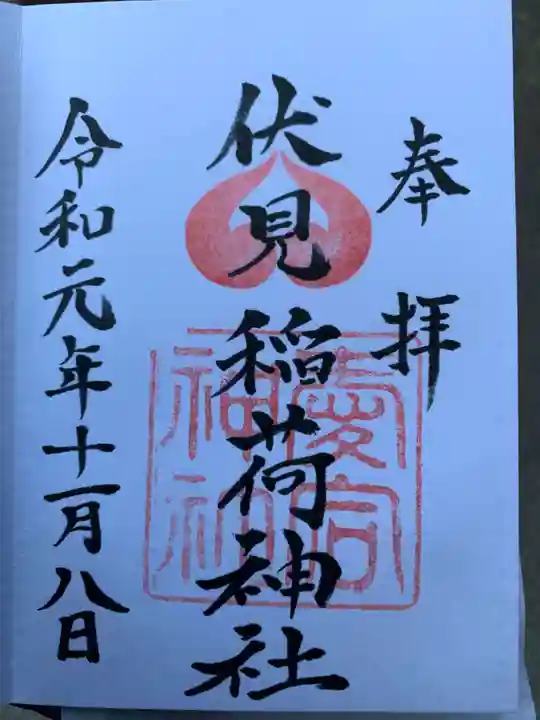 奉拝
伏見稲荷神社
愛宕神社
令和元年十一月八日